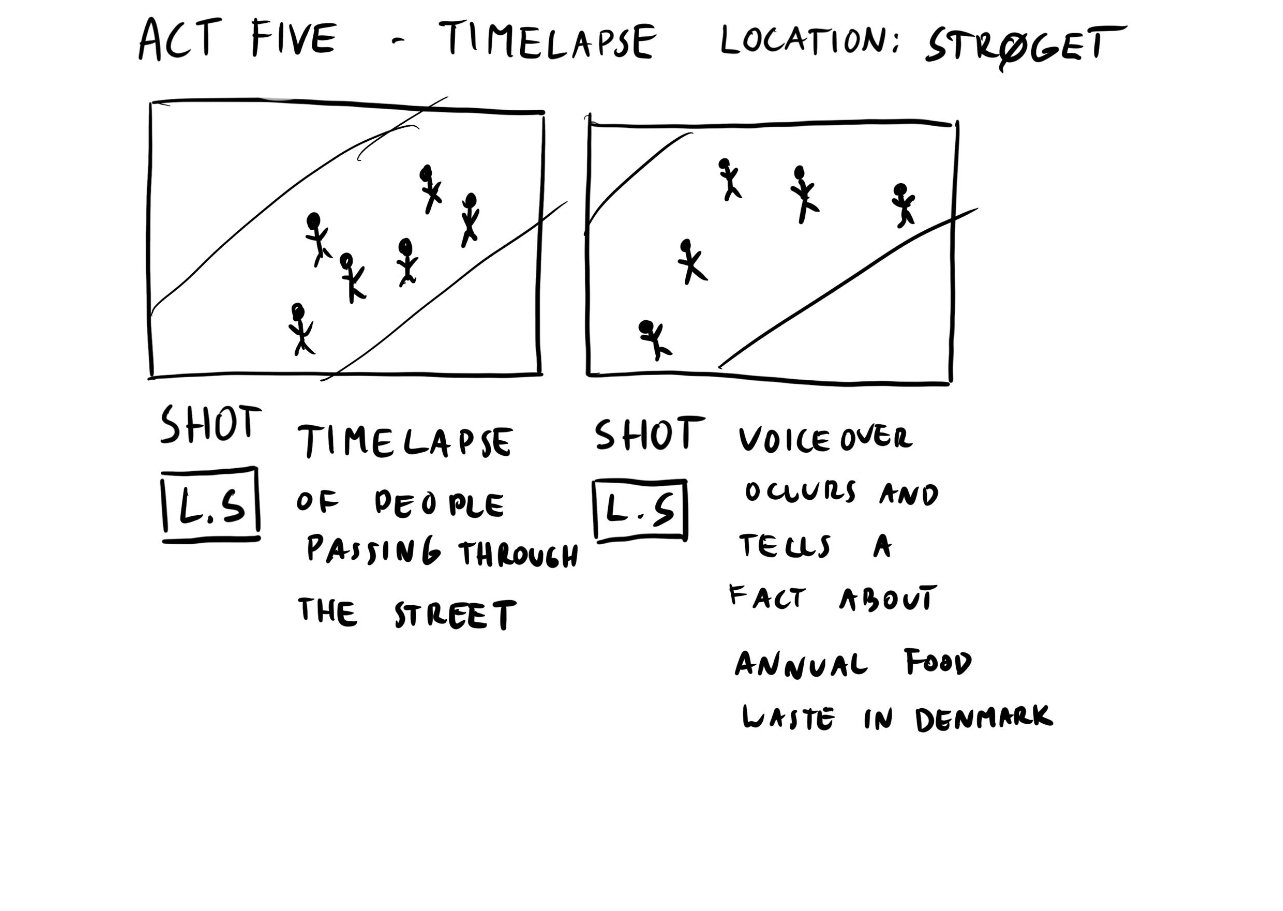 ACT FIVE - TIMELAPSE LOCATION: STRØGET
SHOT
L.S
TIMELAPSE
OF PEOPLE
PASSING THROUGH
THE STREET
SHOT
L.S
VOICE OVER
OCCURS AND
TELLS A
FACT ABOUT
ANNUAL FOOD
WASTE IN DENMARK